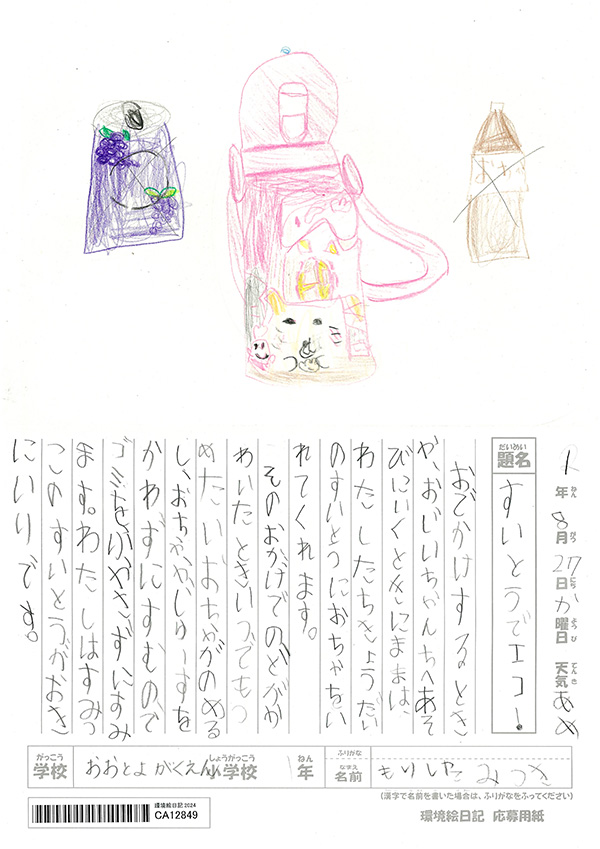 おちゃ
1年 8月27日 か曜日 天気 あめ
ねん がつ にち ようび てんき
だいめい
題名
すいとうでエコー!
おでかけするとき
や、おじいちゃんちへあそ
びにいくときにままは、
わたしたちきょうだい
のすいとうにおちゃをい
れてくれます。
そのおかげでのどがか
わいたときいつでもつ
めたいおちゃがのめる
し、おちゃやじゅーすを
かわずにすむので
ゴミをふやさずにすみ
ます。わたしはすみっ
このすいとうがおき
にいりです。
がっこう
学校
おおとよがくえん
しょうがっこう
小学校
1
ねん
年
ふりがな
なまえ
名前
もりした みつき
(漢字で名前を書いた場合は、ふりがなをふってください)
環境絵日記2024
CA12849
環境絵日記 応募用紙